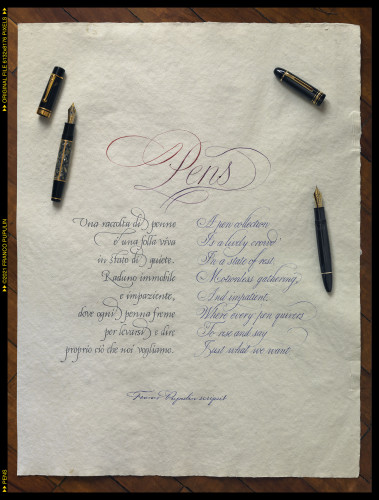 Pens
Una raccolta di penne
è una folla viva
in stato di quiete.
Raduno immobile
e impaziente,
dove ogni penna freme
per levarsi e dire
proprio ciò che noi vogliamo.
A pen collection
Is a lively crowd
In a state of rest.
Motionless gathering,
And impatient,
Where every pen quivers
To rise and say
Just what we want
Franco Pupulin scripsit
▸▸ ORIGINAL FILE 6132x8176 PIXELS
▸▸ ©2021 FRANCO PUPULIN
▸▸ PENS